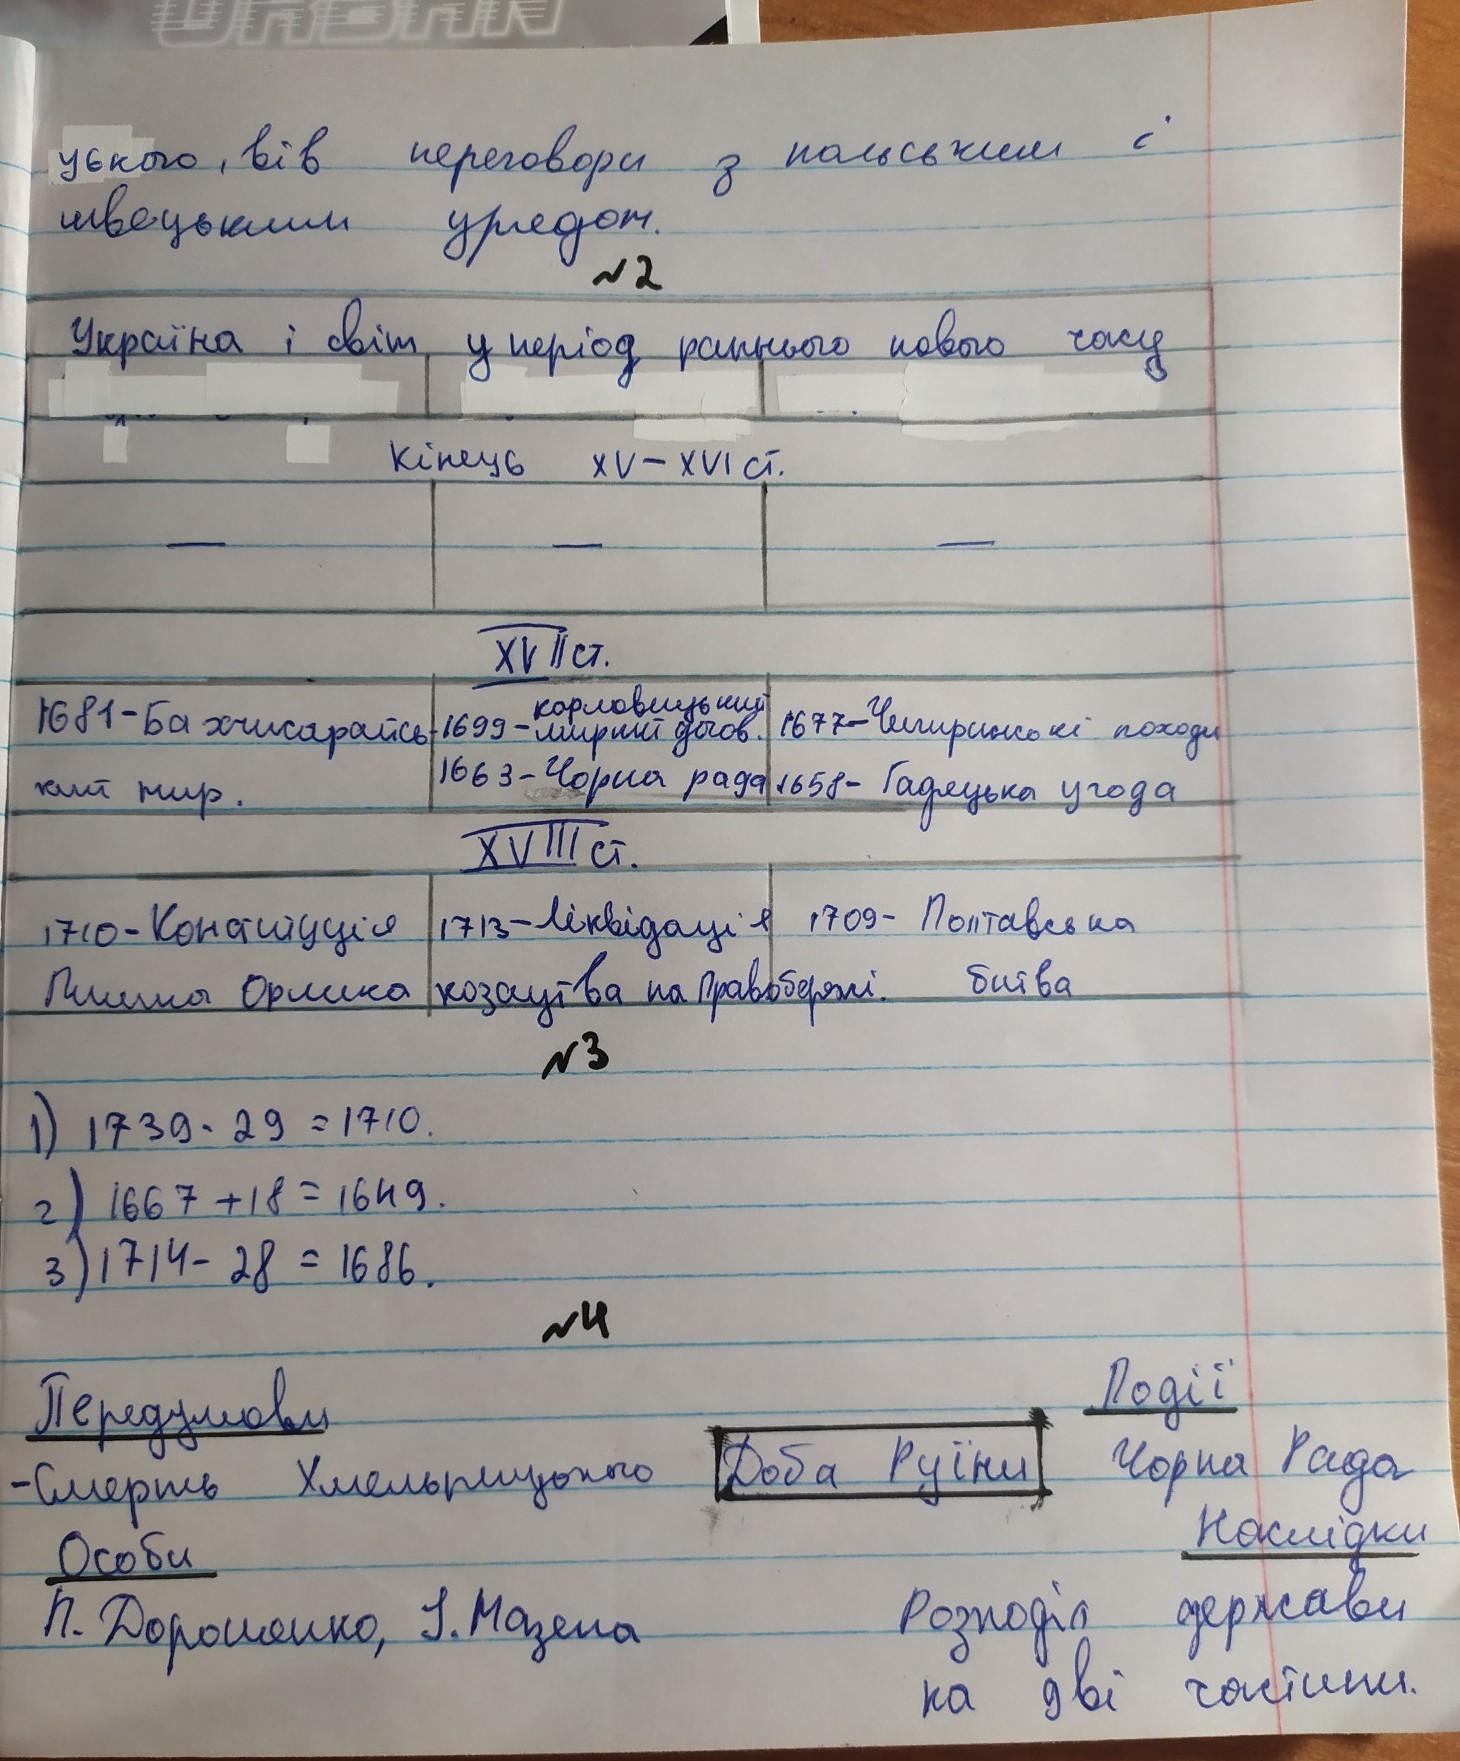 URBAN
ського, вів переговори з польським і
шведським урядом.
№2
Україна і світ у період раннього нового часу
Кінець XV-XVI ст.
— — —
XVII ст.
1681-Бахчисарайсь- 1699-карловицький мирний догов. 1677-Чигиринські походи
кий мир. 1663-Чорна рада 1658-Гадяцька угода
XVIII ст.
1710-Конституція 1713-Ліквідація 1709- Полтавська
Пилипа Орлика козацтва на Правобережі. битва
№3
1) 1739- 29 = 1710.
2) 1667 +18 = 1649.
3) 1714- 28 = 1686.
№4
Передумови Події
-Смерть Хмельницького Доба Руїни Чорна Рада
Особи Наслідки
П. Дорошенко, І. Мазепа Розподіл держави
на дві частини.